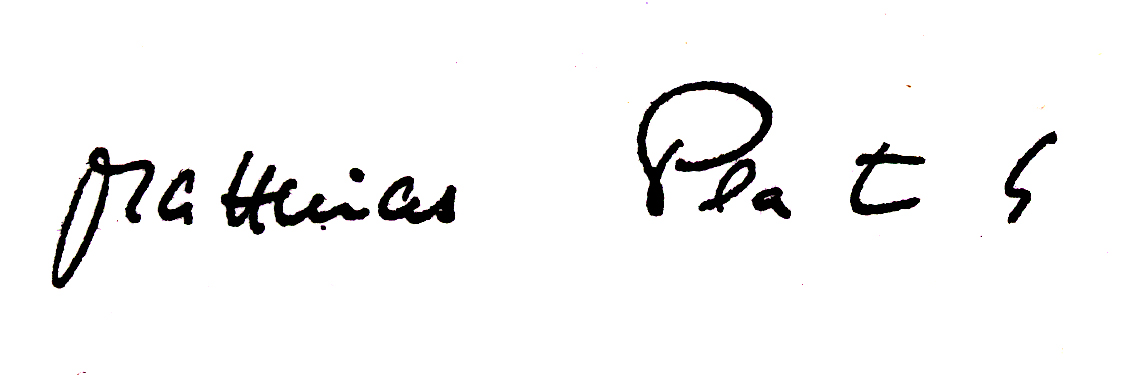 Matthias Plat s